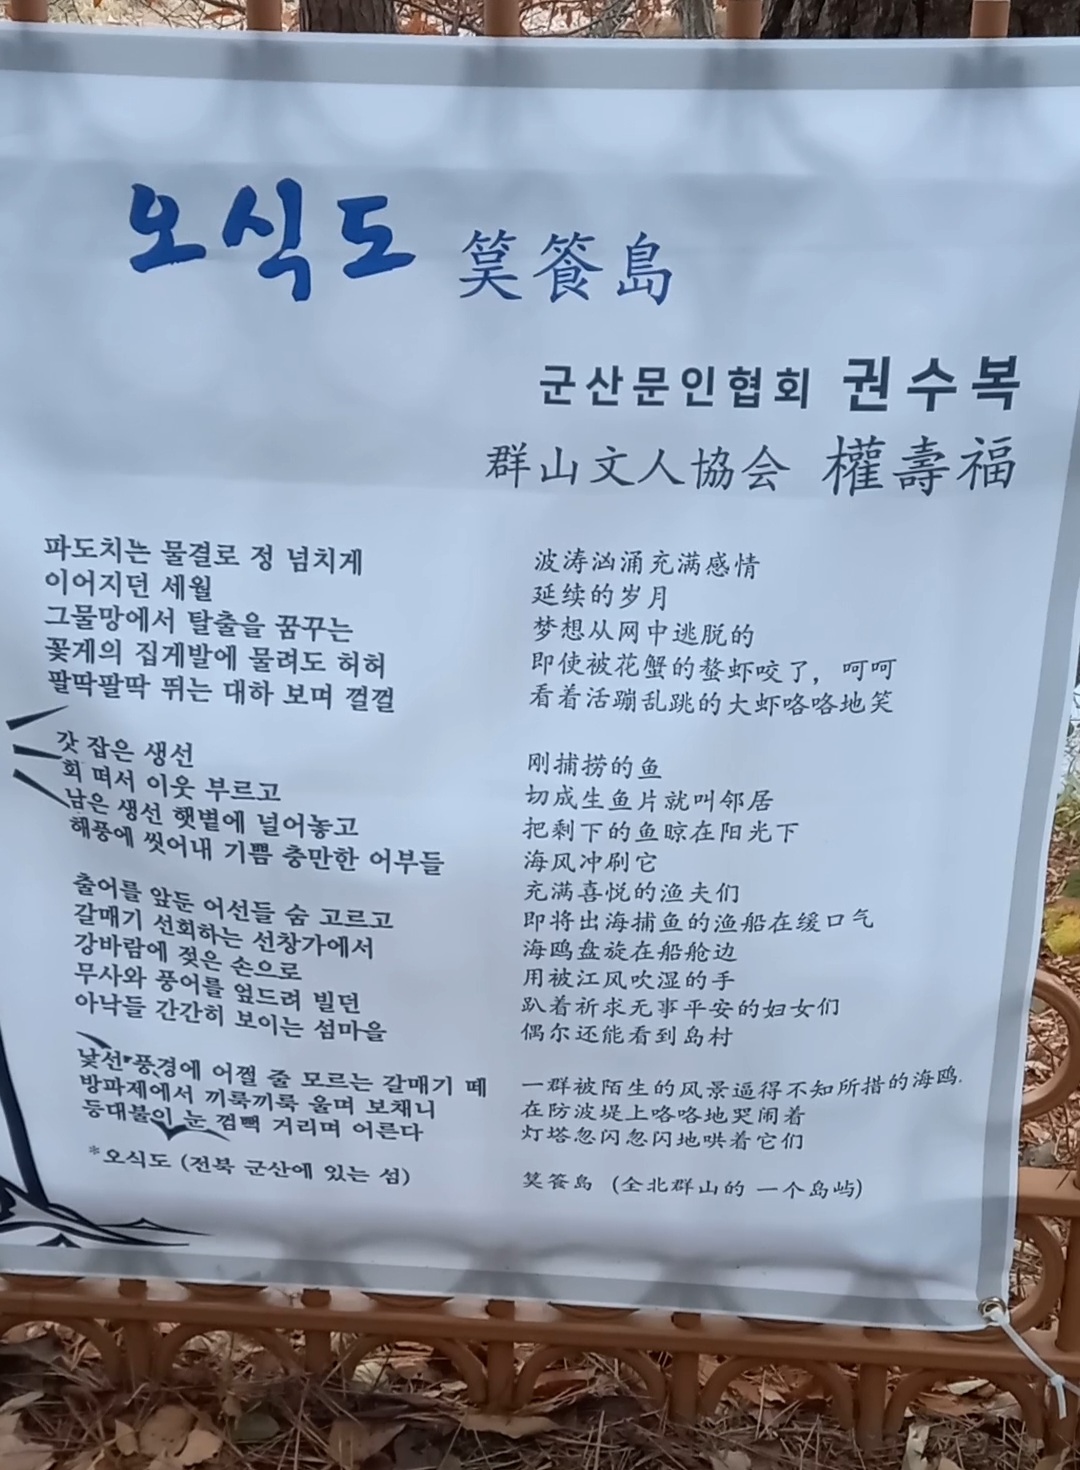 오식도 筽篒島
군산문인협회 권수복
群山文人協会 權壽福
파도치는 물결로 정 넘치게
이어지던 세월
그물망에서 탈출을 꿈꾸는
꽃게의 집게발에 물려도 허허
팔딱팔딱 뛰는 대하 보며 껄껄
갓 잡은 생선
회 떠서 이웃 부르고
남은 생선 햇볕에 널어놓고
해풍에 씻어내 기쁨 충만한 어부들
출어를 앞둔 어선들 숨 고르고
갈매기 선회하는 선창가에서
강바람에 젖은 손으로
무사와 풍어를 엎드려 빌던
아낙들 간간히 보이는 섬마을
낯선 풍경에 어쩔 줄 모르는 갈매기 떼
방파제에서 끼룩끼룩 울며 보채니
등대불이 눈 껌뻑 거리며 어른다
*오식도 (전북 군산에 있는 섬)
波涛汹涌充满感情
延续的岁月
梦想从网中逃脱的
即使被花蟹的螯虾咬了，呵呵
看着活蹦乱跳的大虾咯咯地笑
刚捕捞的鱼
切成生鱼片就叫邻居
把剩下的鱼晾在阳光下
海风冲刷它
充满喜悦的渔夫们
即将出海捕鱼的渔船在缓口气
海鸥盘旋在船舱边
用被江风吹湿的手
趴着祈求无事平安的妇女们
偶尔还能看到岛村
一群被陌生的风景逼得不知所措的海鸥.
在防波堤上咯咯地哭闹着
灯塔忽闪忽闪地哄着它们
筽篒島 (全北群山的 一个岛屿)